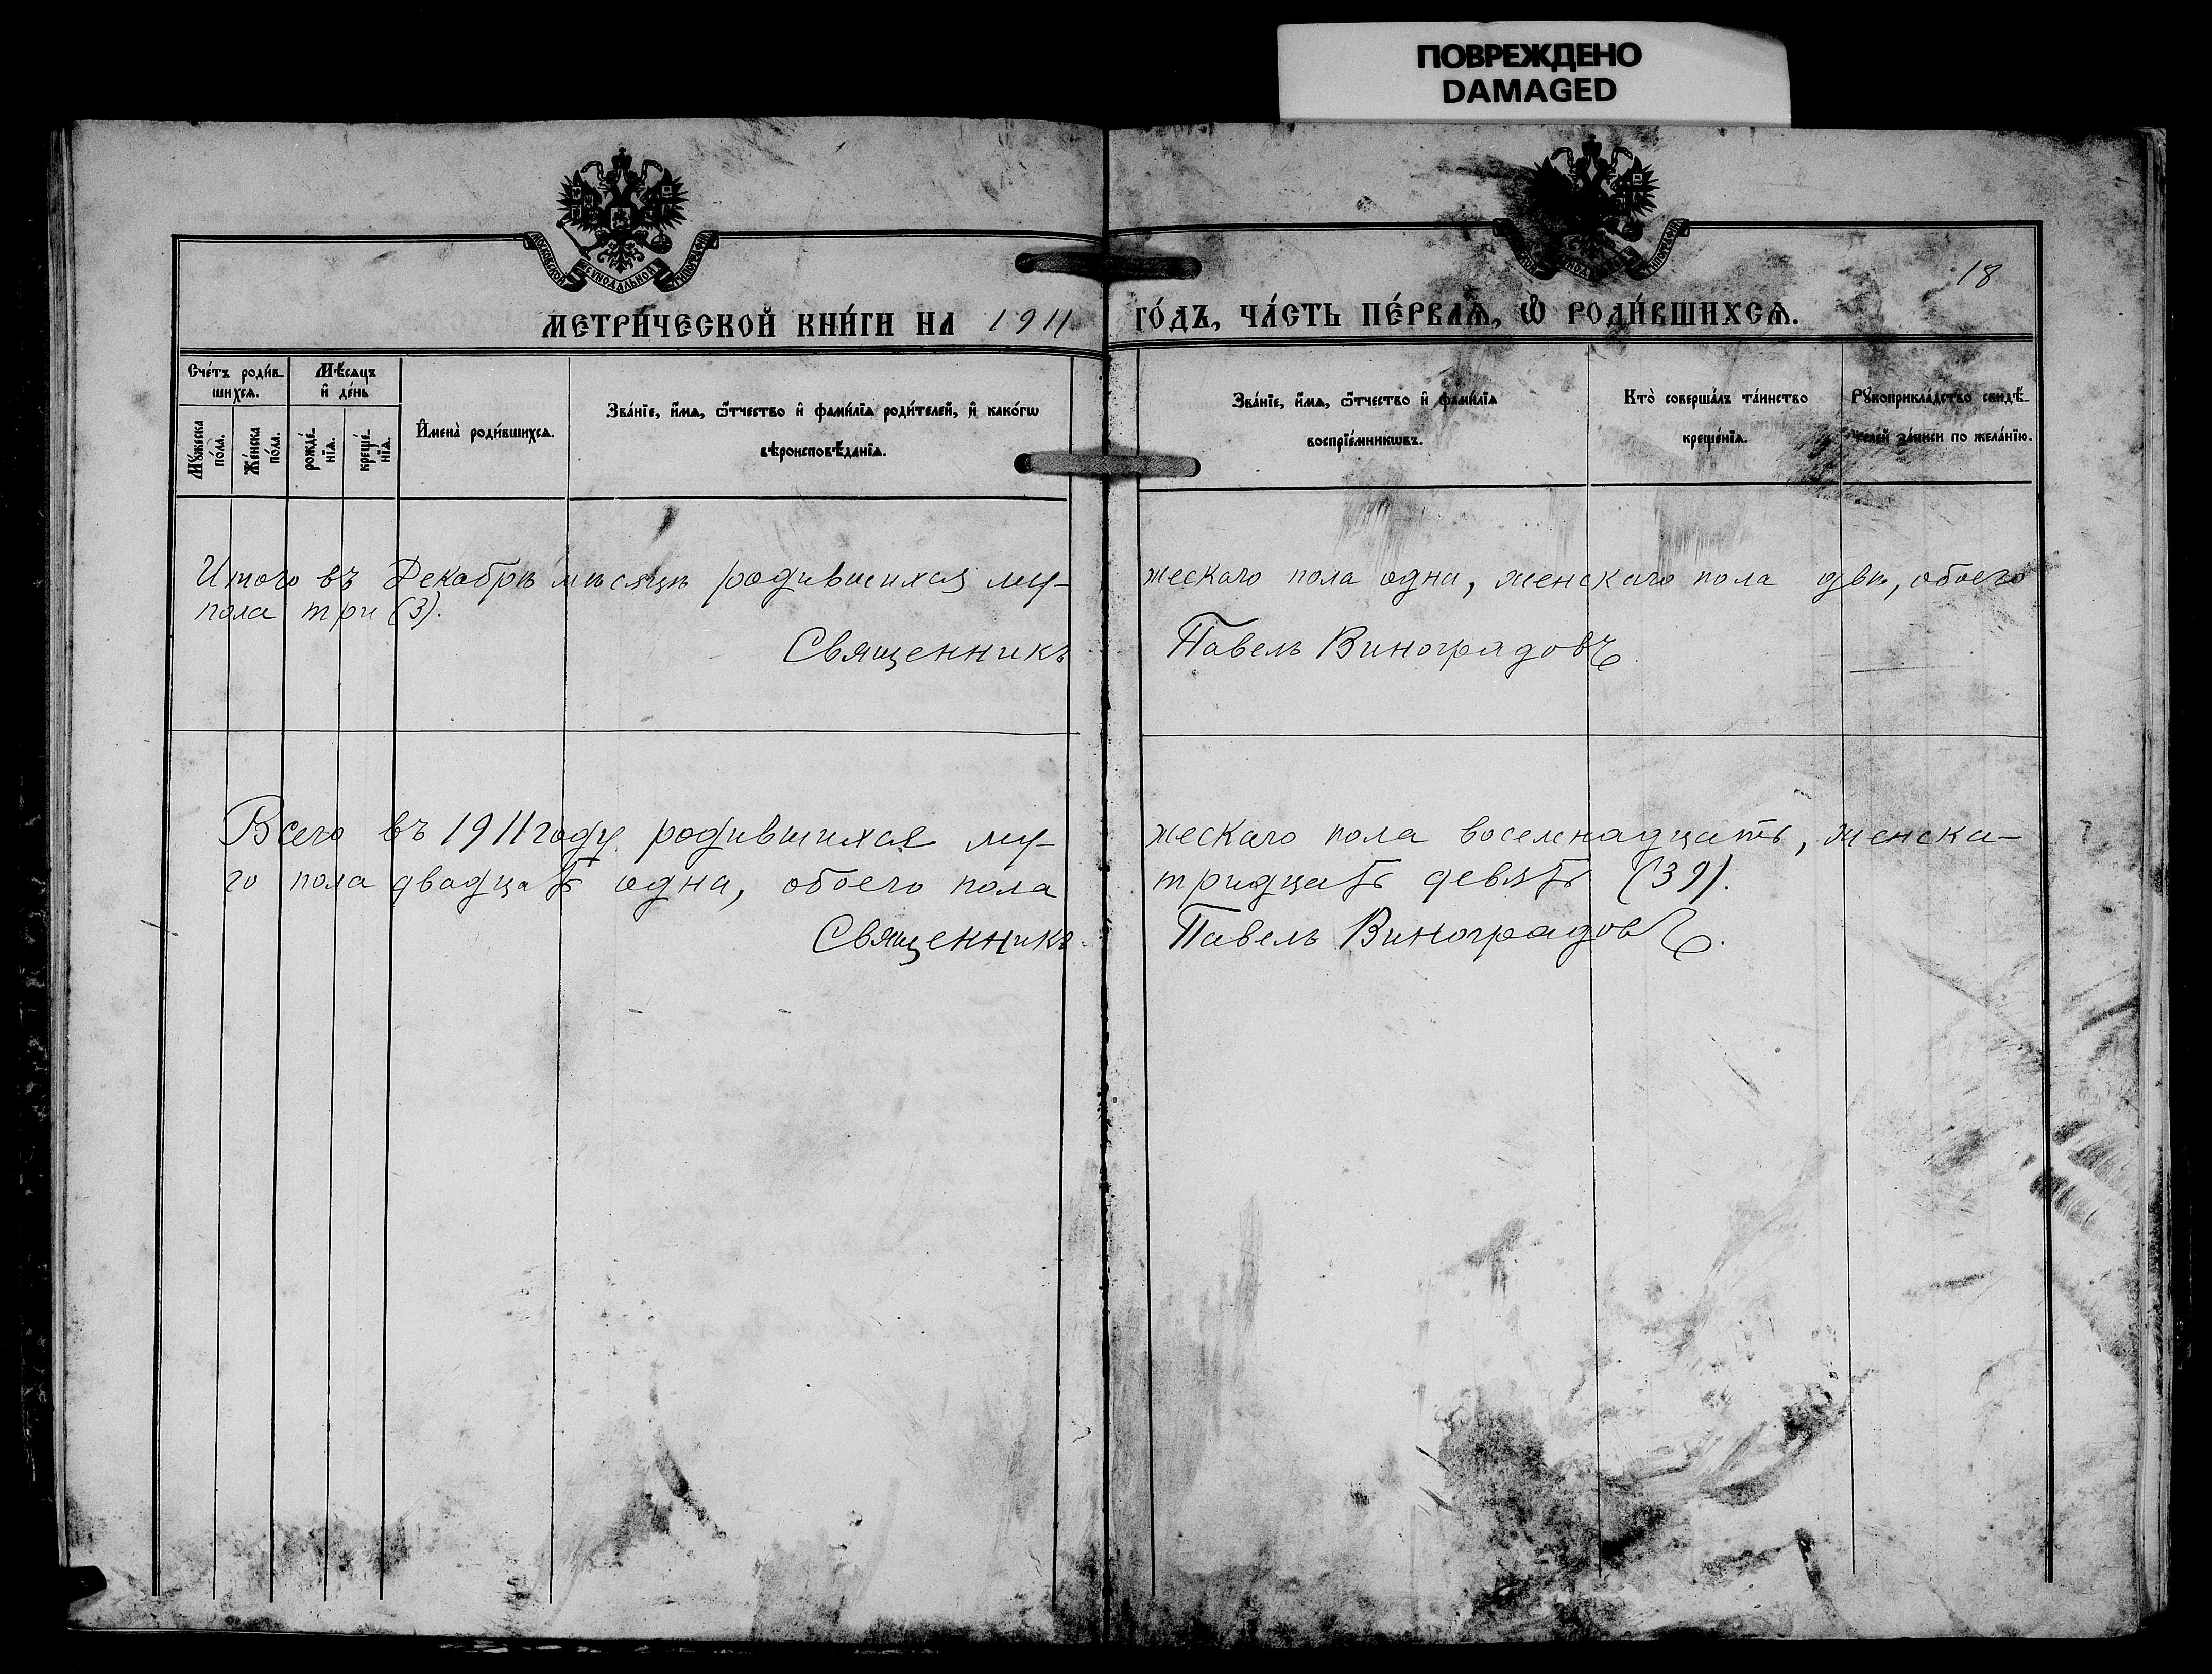 ПОВРЕЖДЕНО
DAMAGED
МОСКОВСКОЙ СѴНОДАЛЬНОЙ ТИПОГРАФІИ
18
МЕТРИ́ЧЕСКОЙ КНИ́ГИ НА 1911 ГО́ДЪ, ЧА́СТЬ ПЕ́РВАѦ, Ѿ РОДИ́ВШИХСѦ.
Сче́тъ роди́в-
шихсѧ.
Мѣ́сѧцъ
и҆ де́нь
Мꙋ́жеска
по́ла.
Же́нска
по́ла.
рожде́-
нїѧ.
креще́-
нїѧ.
И҆мена̀ роди́вшихсѧ.
Зва́нїе, и҆́мѧ, ѻ҆́тчество и҆ фами́лїѧ роди́телей, и҆ како́гѡ
вѣроисповѣ́данїѧ.
Зва́нїе, и҆́мѧ, ѻ҆́тчество и҆ фами́лїѧ
воспрїе́мникѡвъ.
Кто̀ соверша́лъ та́инство
креще́нїѧ.
Рꙋкоприкла́дство свидѣ́-
телей за́писи по жела́нїю.
Итого въ Декабрѣ мѣсяцѣ родившихся му-жескаго пола одна, женскаго пола двѣ, обоего
пола три (3).
Священникъ Павелъ Виноградовъ
Всего въ 1911 году родившихся му-жескаго пола восемнадцать, женска-
го пола двадцать одна, обоего пола тридцать девять (39).
Священникъ Павелъ Виноградовъ.